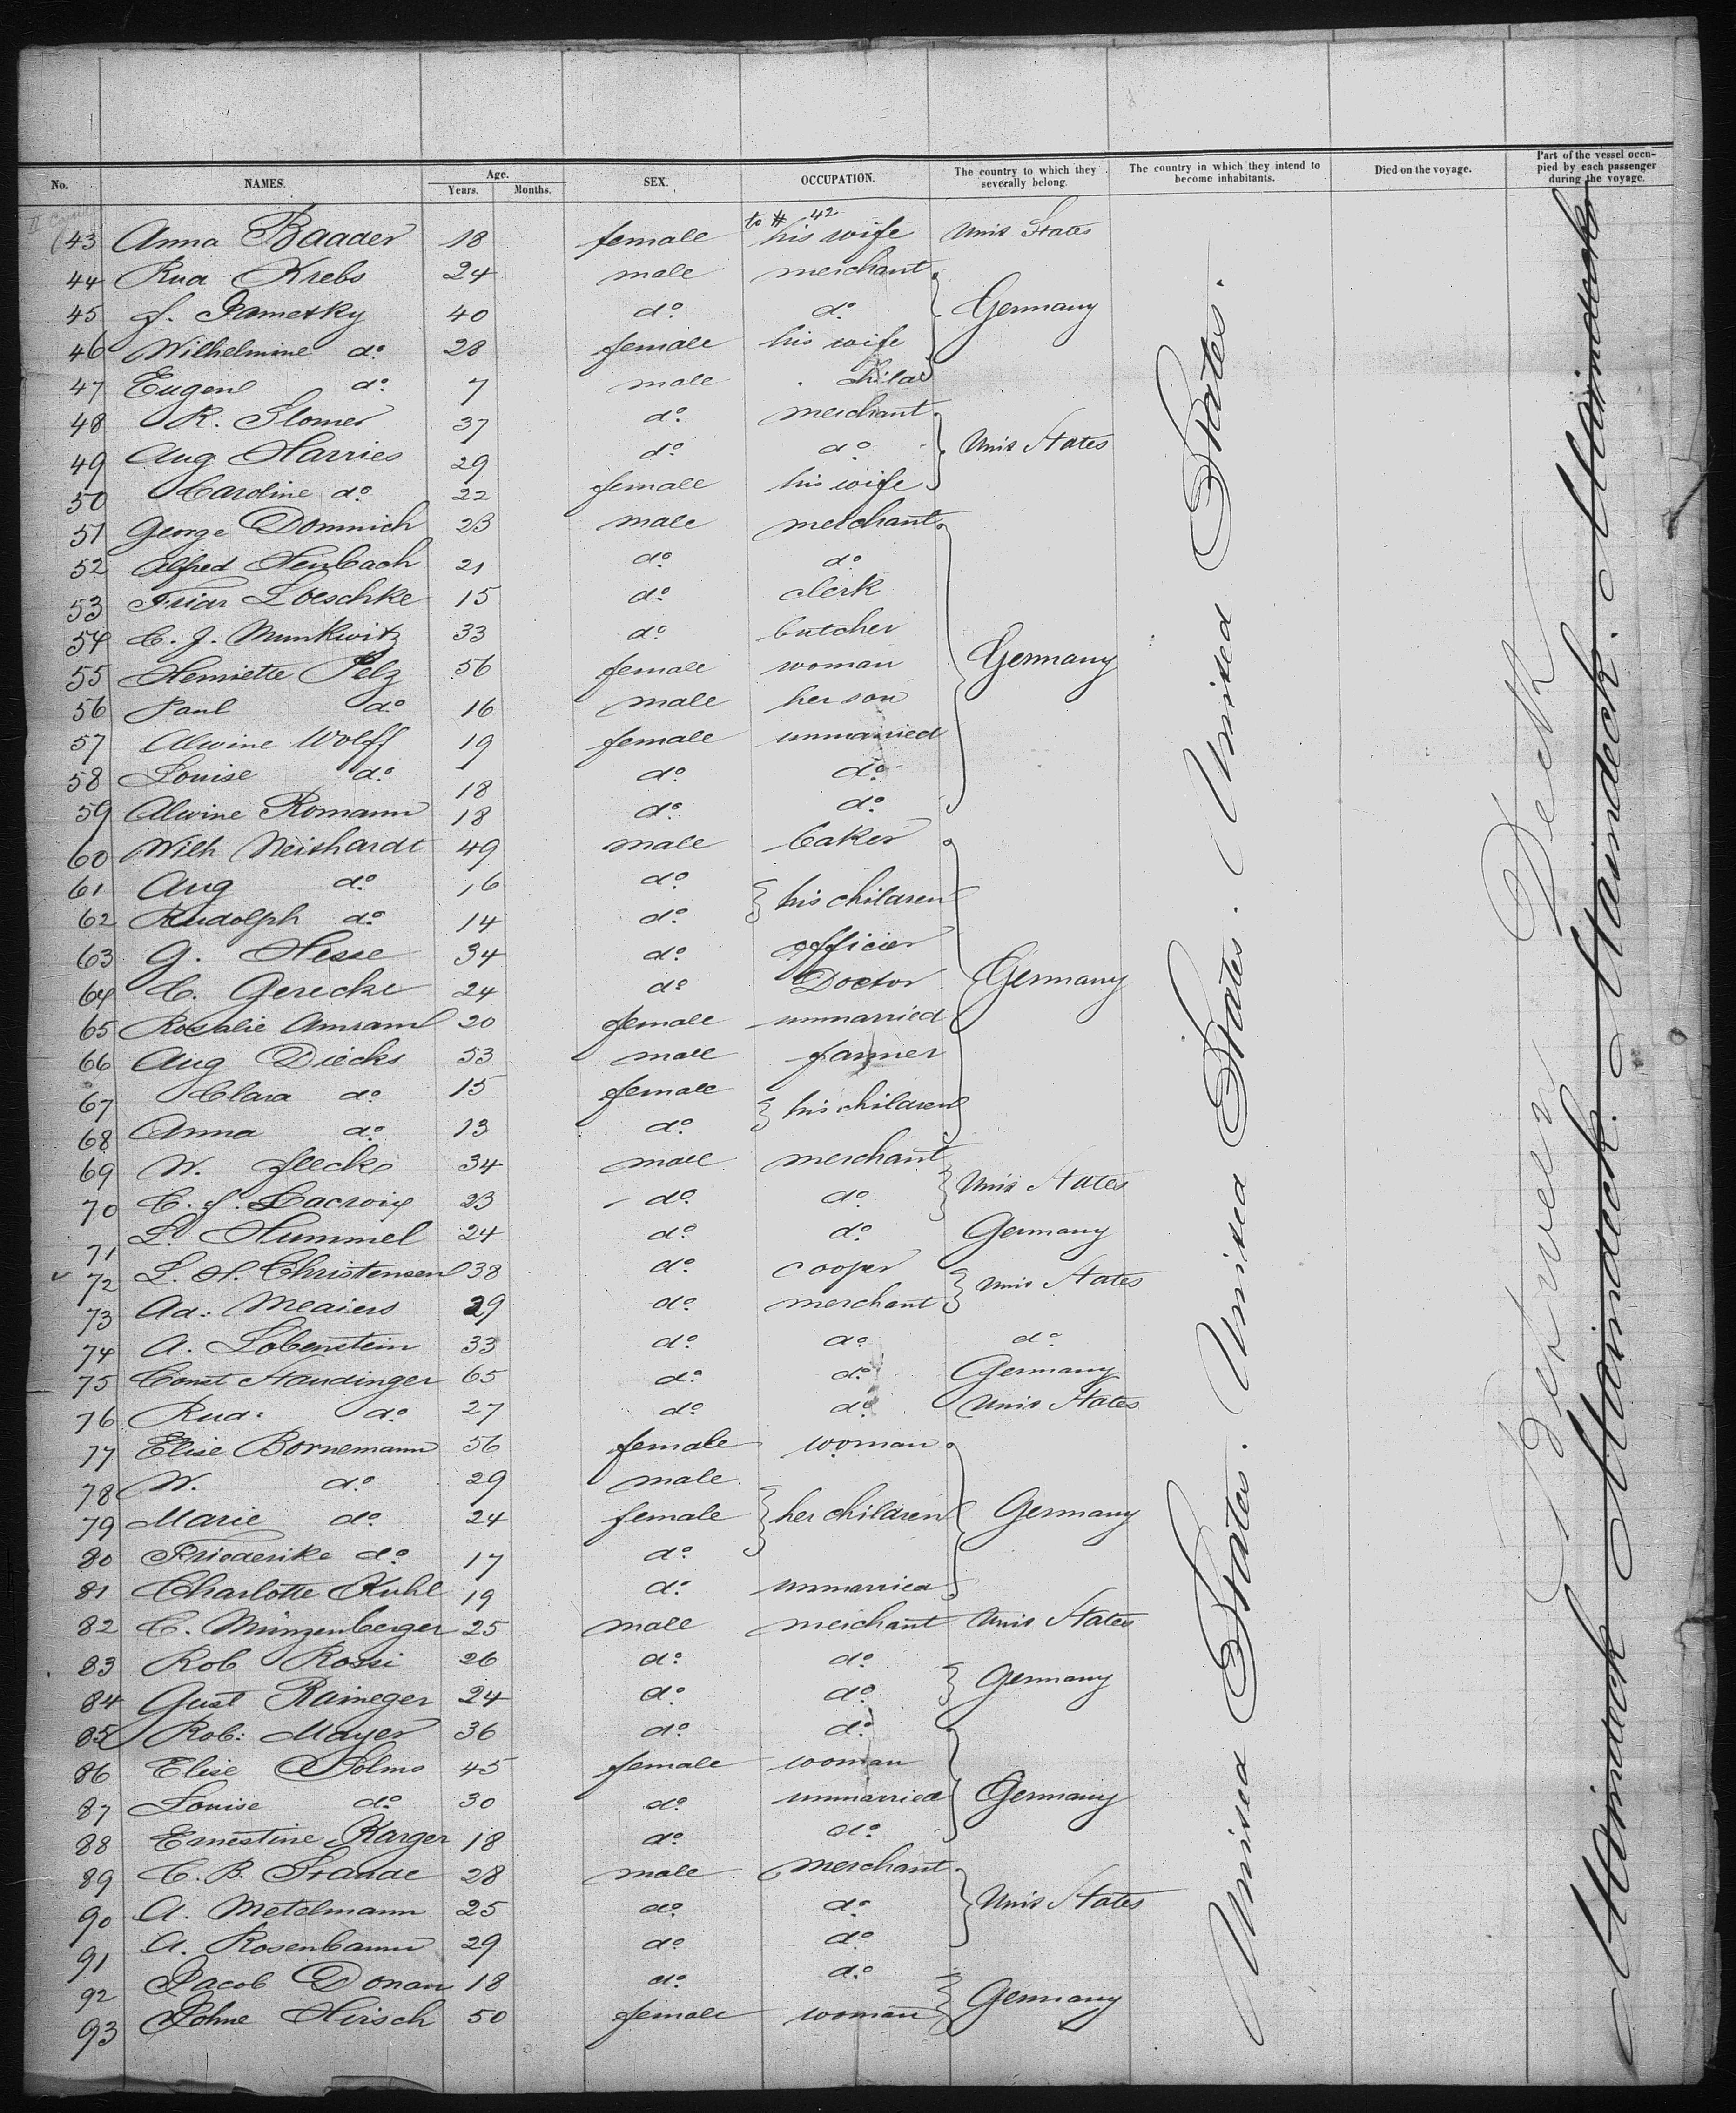 No. NAMES. Age. Years. Months. SEX. OCCUPATION. The country to which they severally belong. The country in which they intend to become inhabitants. Died on the voyage. Part of the vessel occupied by each passenger during the voyage.
to # 42
43 Anna Baader 18 female his wife Unit States
44 Rud Krebs 24 male merchant
45 J. Jametky 40 do. do. Germany
46 Wilhelmine do. 28 female his wife
47 Eugen do. 7 male child
48 R. Slomer 37 do. merchant
49 Aug Harries 29 do. do. Unit States
50 Caroline do. 22 female his wife
51 George Domnich 23 male merchant
52 Alfred Heinbach 21 do. do.
53 Loeschke 15 do. clerk
54 C. J. Munkwitz 33 do. butcher
55 Henriette Pelz 56 female woman Germany
56 Paul do. 16 male her son
57 Alwine Wolff 19 female unmarried
58 Louise do. 18 do. do.
59 Alwine Romann 18 do. do.
60 Wilh Neithardt 49 male baker
61 Aug do. 16 do. his children
62 Rudolph do. 14 do.
63 G. Hesse 34 do. officier
64 C. Gericke 24 do. Doctor Germany
65 Rosalie Amram 20 female unmarried
66 Aug Diecks 53 male farmer
67 Clara do. 15 female his children
68 Anna do. 13 do.
69 W. Flecks 34 male merchant Unit States
70 C. F. Lacroix 23 do. do.
71 L. Hummel 24 do. do. Germany
72 L. H. Christensen 38 do. cooper Unit States
73 Ad: Meaiers 29 do. merchant
74 A. Lobenstein 33 do. do. do.
75 Const Staudinger 65 do. do. Germany
76 Rud: do. 27 do. do. Unit States
77 Elise Bornemann 56 female woman
78 W. do. 29 male
79 Marie do. 24 female her children Germany
80 Friederike do. 17 do.
81 Charlotte Kuhl 19 do. unmarried
82 C. Münzenberger 25 male merchant Unit States
83 Rob Rossi 26 do. do. Germany
84 Gust Raineger 24 do. do.
85 Rob: Mayer 36 do. do.
86 Elise Solms 45 female woman
87 Louise do. 30 do. unmarried Germany
88 Ernestine Karger 18 do. do.
89 C. B. Staude 28 male merchant
90 A. Metelmann 25 do. do. Unit States
91 A. Rosenbaum 29 do. do.
92 Jacob Donan 18 do. do. Germany
93 Johne Hirsch 50 female woman
United States. United States. United States.
Between Deck
Maindeck Maindeck. Maindeck. Maindeck